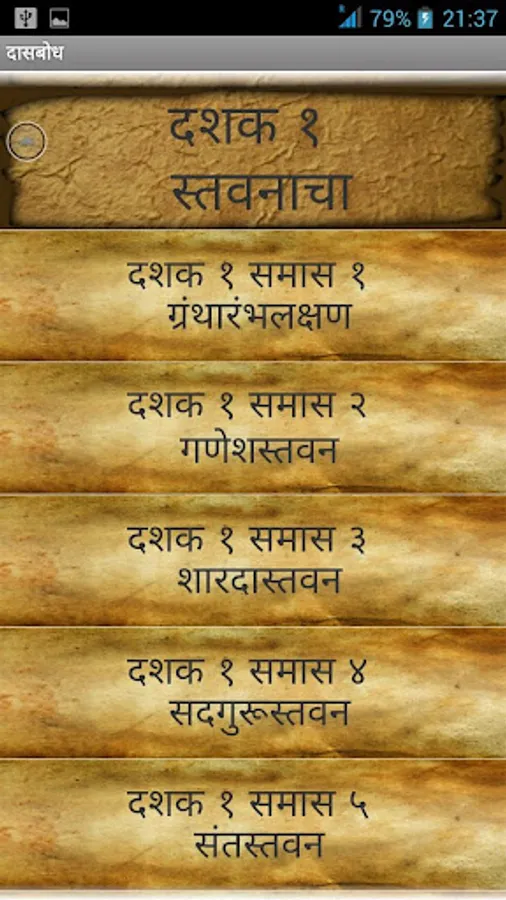 79% 21:37
दासबोध
दशक १
स्तवनाचा
दशक १ समास १
ग्रंथारंभलक्षण
दशक १ समास २
गणेशस्तवन
दशक १ समास ३
शारदास्तवन
दशक १ समास ४
सदगुरूस्तवन
दशक १ समास ५
संतस्तवन